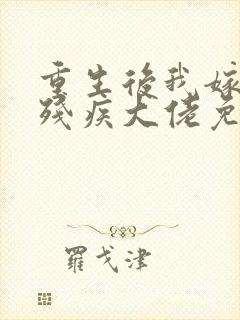 重生後我嫁
殘疾大佬免
羅戈津